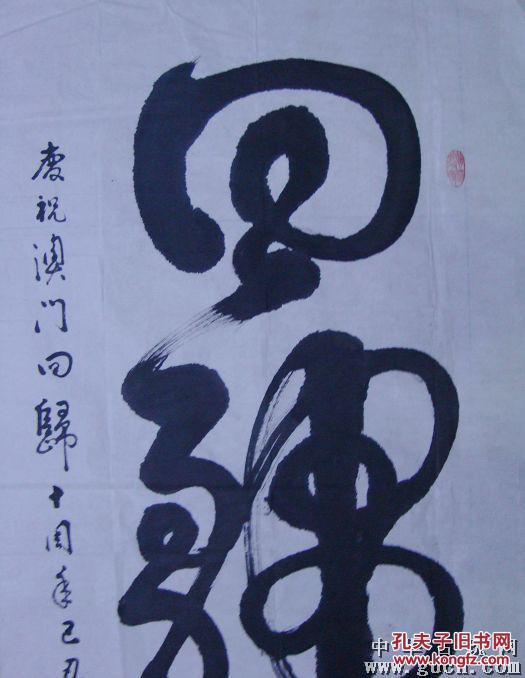 回歸
慶祝澳门回歸十周年己丑
孔夫子旧书网
www.kongfz.com